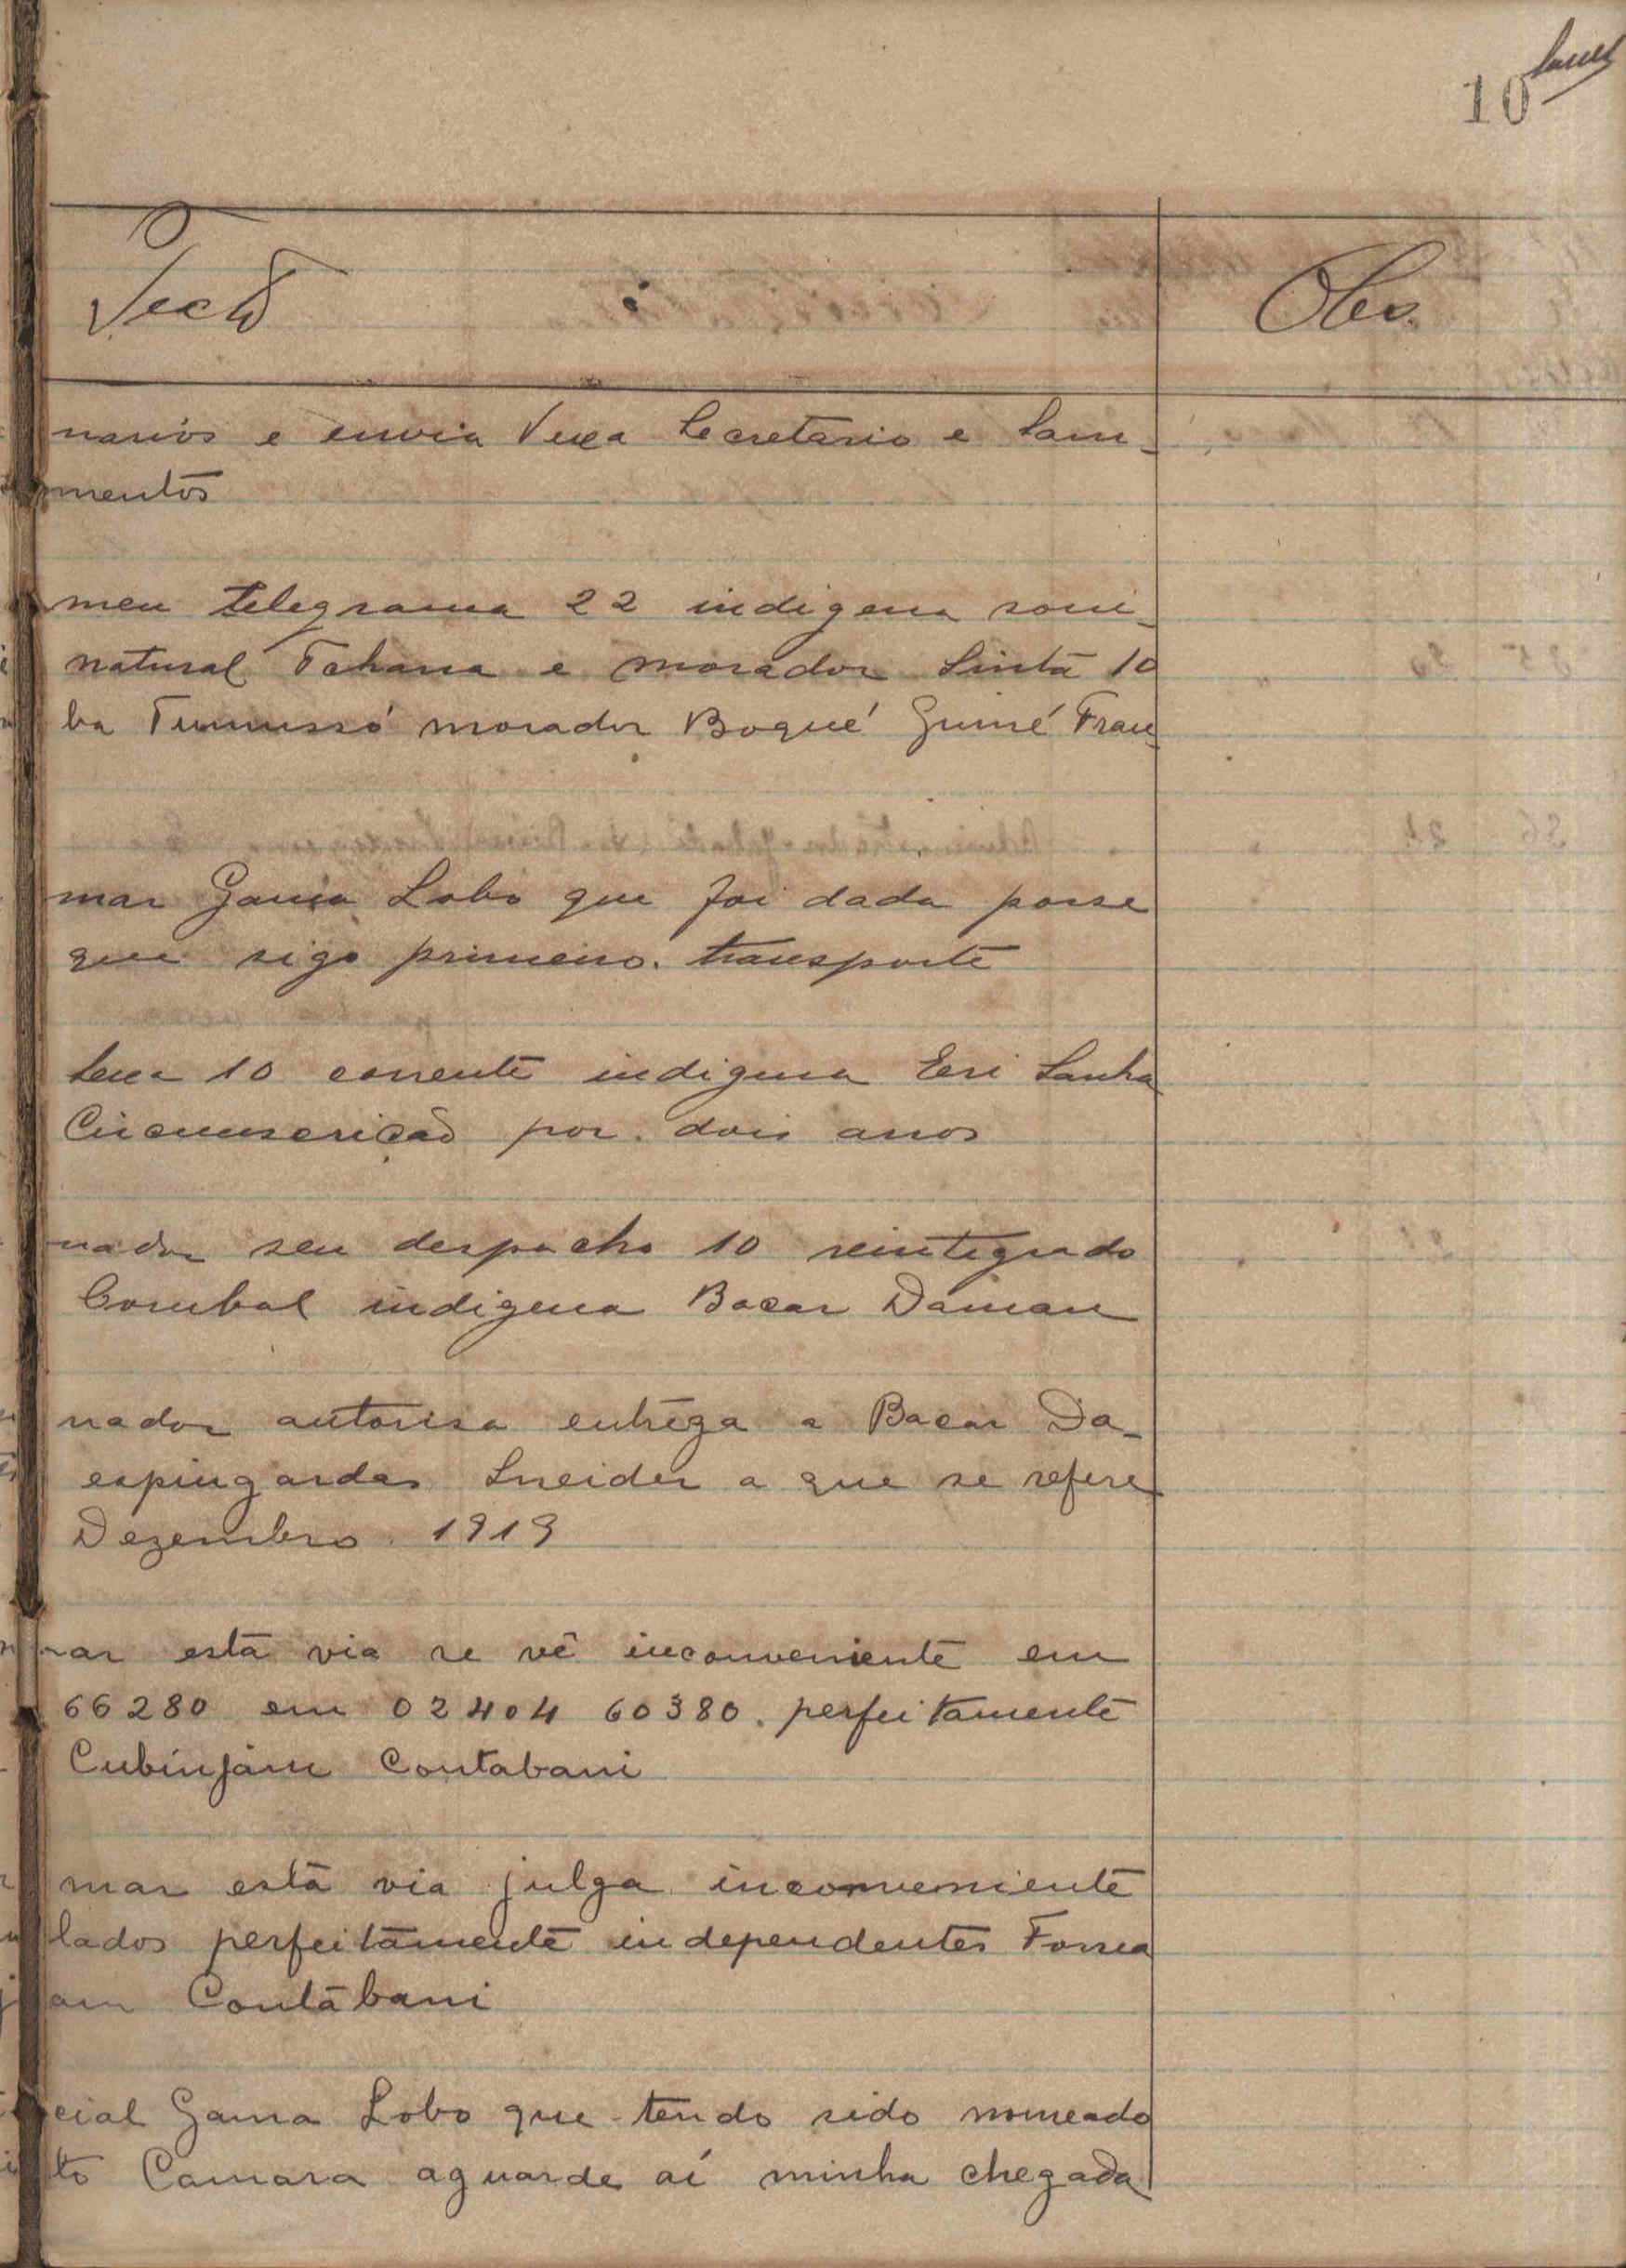 10
Texto :
Obs.
narios e envia Vexa Secretario e Sam-
mentos
meu telegrama 22 indigena soni-
natural Tahana e morador Sintã 10
ba morador Boqué Guiné Fran-
mar Gama Lobo que foi dada posse
que siga primeiro transporte
10 corrente indigena Sanha
Circunscrição por dois anos
nador seu despacho 10 reintegrado
Corubal indigena Bacar Daman
nador autorisa entréga a Bacar Da-
espingardas Sneider a que se refere
Dezembro 1919
mar está via se vê inconveniente em
66280 em 02404 60380 perfeitamente
Cubinjam Contabani
mar está via julga inconveniente
lados perfeitamente independentes
am Contabani
cial Gama Lobo que tendo sido nomeado
to Camara aguarde aí minha chegada